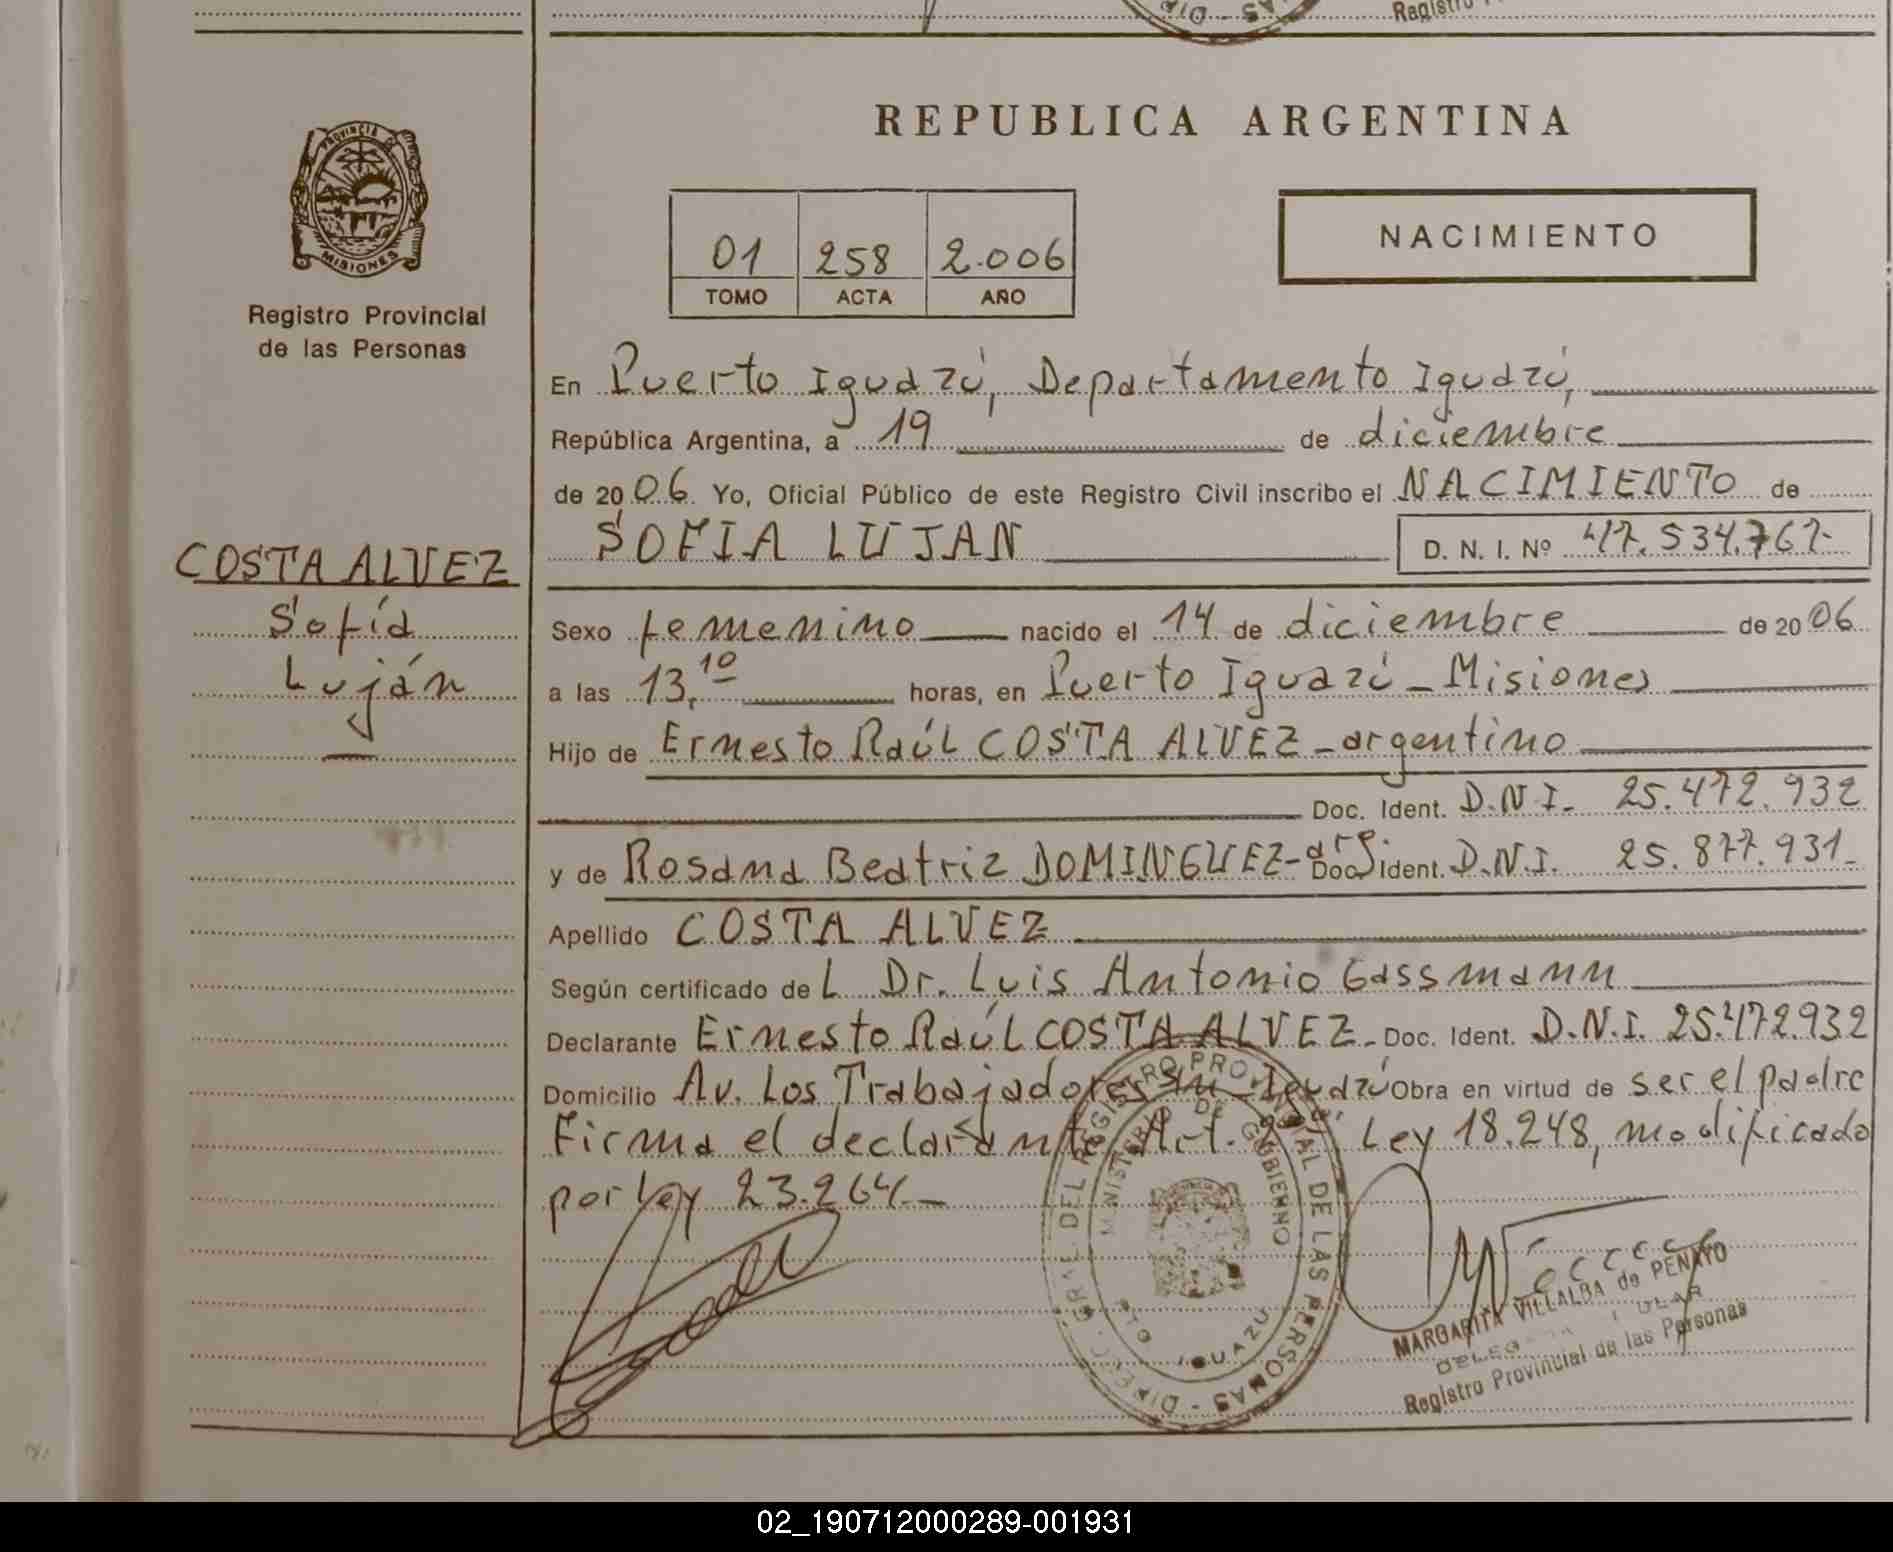 Registro P
DIR AS
REPUBLICA ARGENTINA
PROVINCIA DE
MISIONES
Registro Provincial
de las Personas
01 258 2.006
TOMO ACTA AÑO
NACIMIENTO
En Puerto Iguazú, Departamento Iguazú,
República Argentina, a 19 de diciembre
de 2006. Yo, Oficial Público de este Registro Civil inscribo el NACIMIENTO de
SOFIA LUJAN D. N. I. Nº 47.534.767-
COSTA ALVEZ
Sofía
Luján
Sexo femenino nacido el 14 de diciembre de 2006
a las 13,10 horas, en Puerto Iguazú - Misiones
Hijo de Ernesto Raúl COSTA ALVEZ - argentino
Doc. Ident. D.N.I. 25.472.932
y de Rosana Beatriz DOMINGUEZ - arg Doc. ident. D.N.I. 25.877.931-
Apellido COSTA ALVEZ
Según certificado de L Dr. Luis Antonio Gassmann
Declarante Ernesto Raúl COSTA ALVEZ - Doc. Ident. D.N.I. 25.472.932
Domicilio Av. Los Trabajadores s/n - Iguazú Obra en virtud de ser el padre
Firma el declarante Art. Ley 18.248, modificado
por Ley 23.264.-
DIREC. GRAL. DEL REGISTRO PROVINCIAL DE LAS PERSONAS -
MINISTERIO DE GOBIERNO
IGUAZU
MARGARITA VILLALBA de PENAYO
Registro Provincial de las Personas
02_190712000289-001931